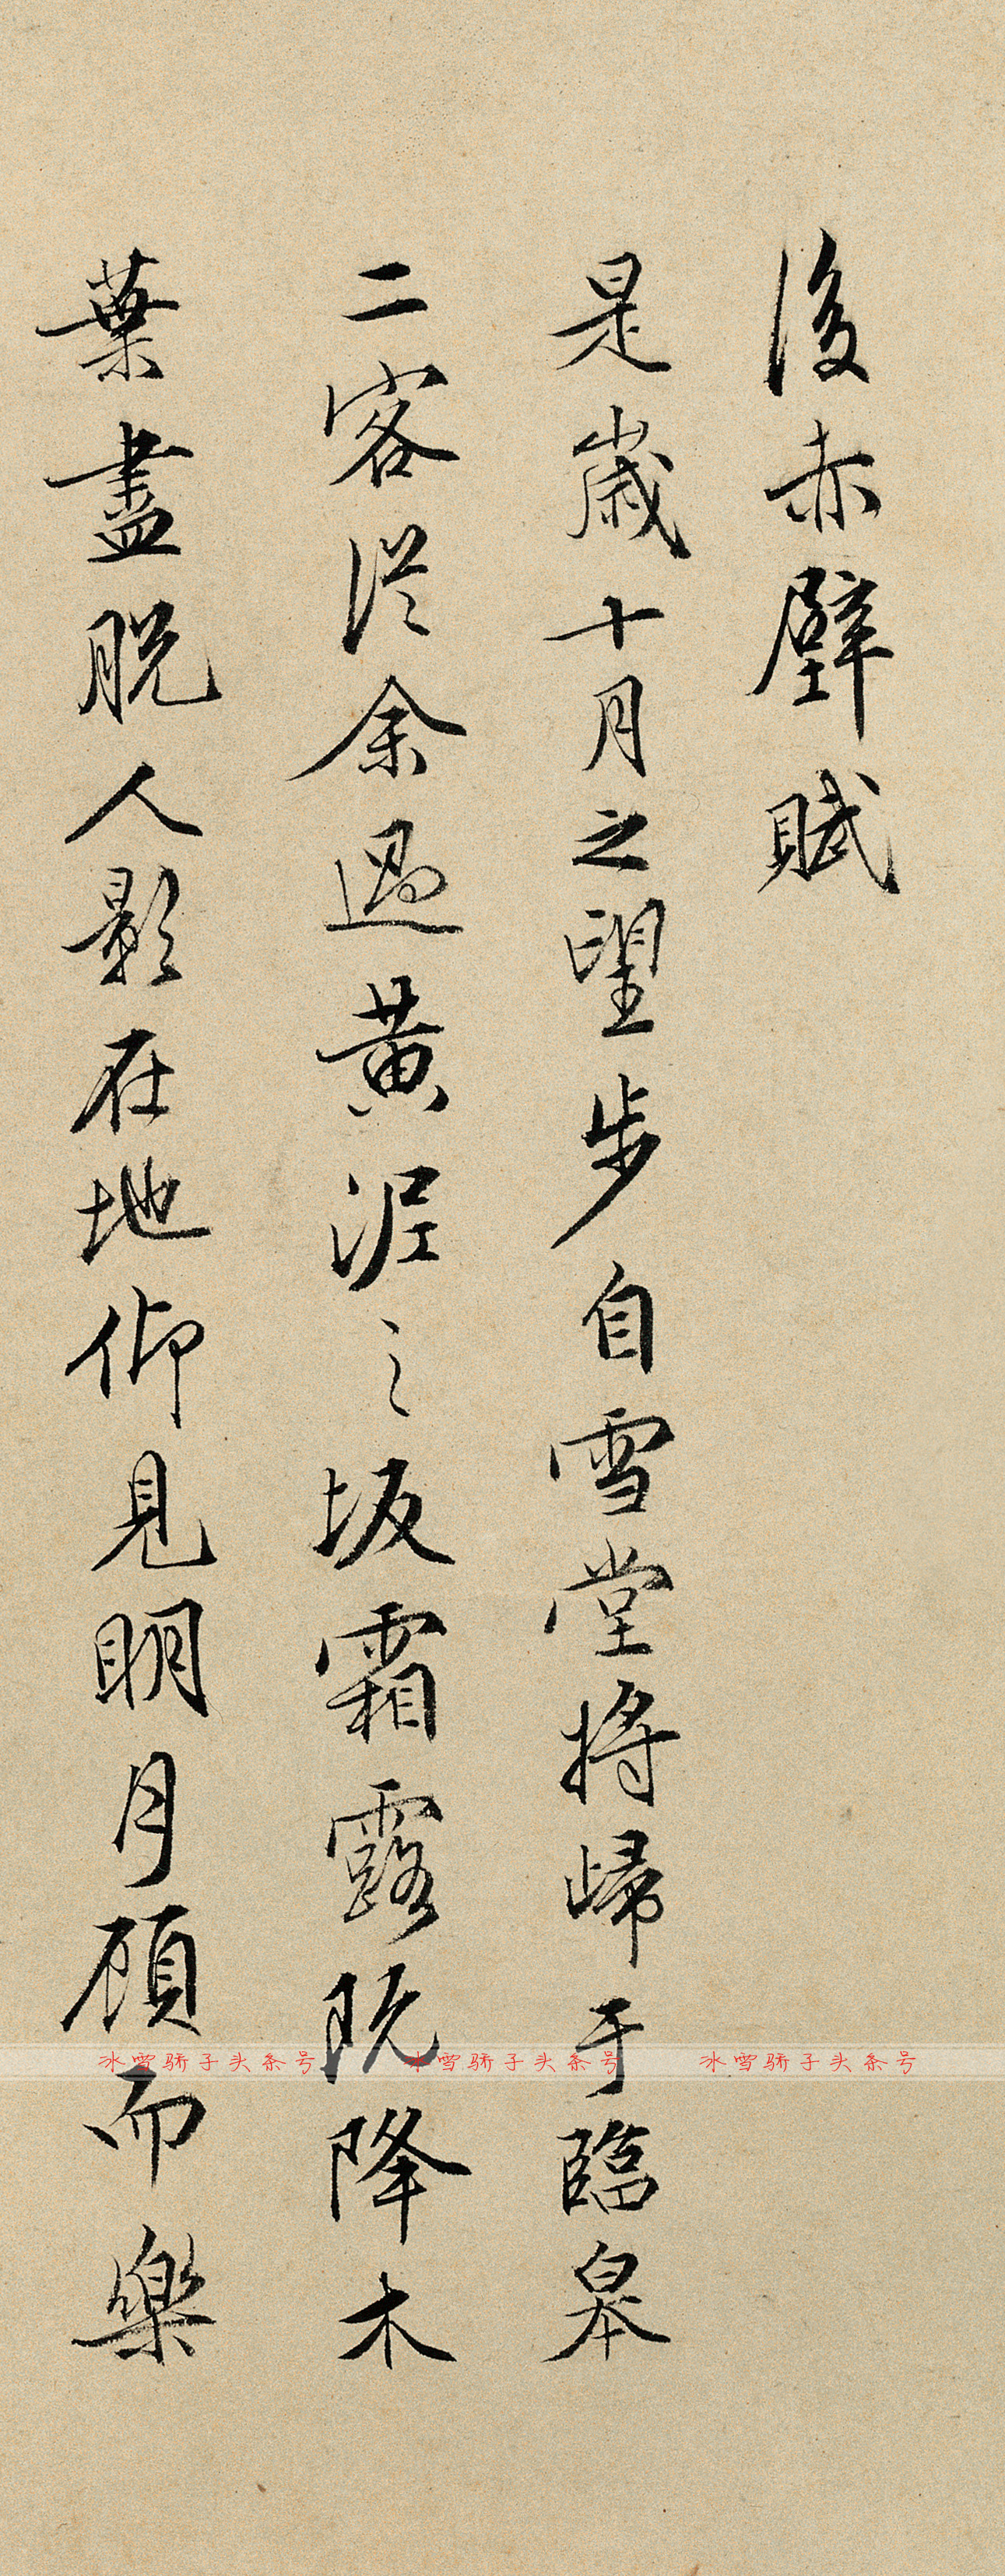 後赤壁賦
是歲十月之望步自雪堂將歸于臨皋
二客從余過黃泥之坂霜露既降木
葉盡脫人影在地仰見明月顧而樂
冰雪骄子头条号 冰雪骄子头条号 冰雪骄子头条号